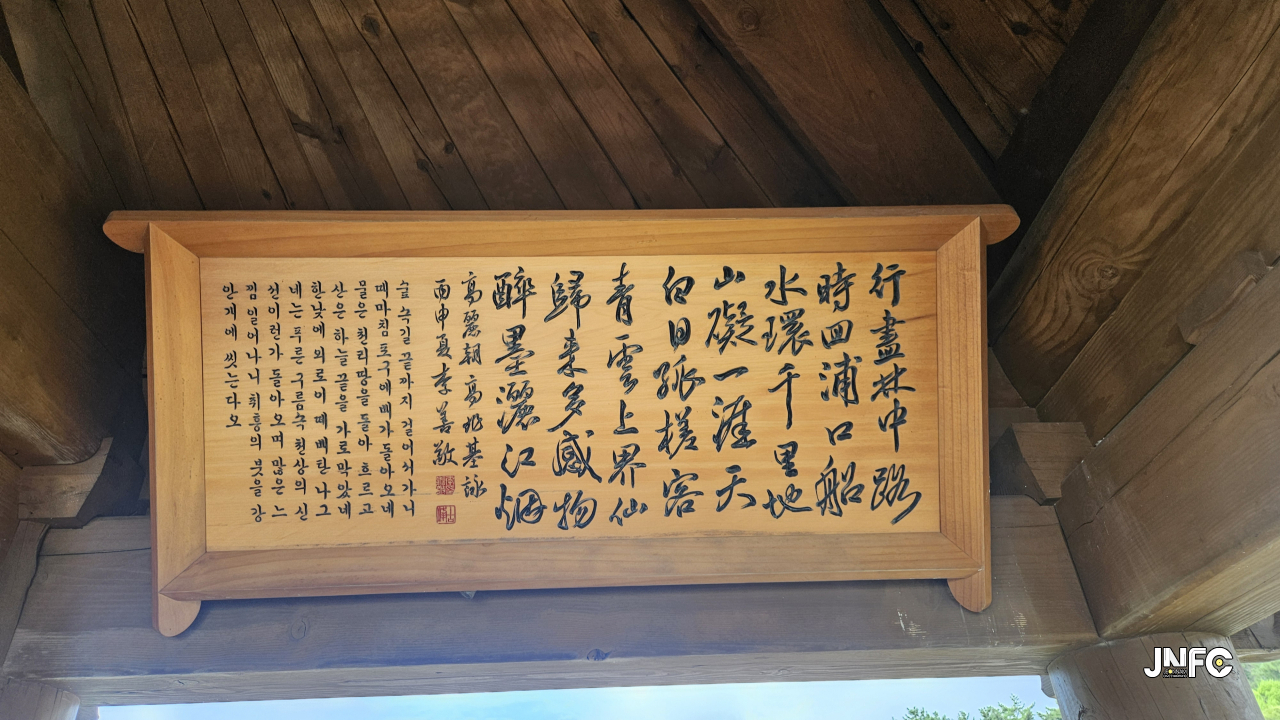 行盡林中路
時回浦口船
水環千里地
山礙一涯天
白日孤槎客
青雲上界仙
歸來多感物
醉墨灑江烟
高麗朝 高兆基 詠
丙申夏 李善敬
숲 속길 끝까지 걸어서가니
때마침 포구에 배가돌아오네
물은 천리땅을 돌아 흐르고
산은 하늘 끝을 가로막았네
한낮에 외로이 떼 배탄 나그
네는 푸른 구름속 천상의 신
선이런가 돌아오며 많은 느
낌 일어나니 취흥의 붓을 강
안개에 씻는다오
JNFC